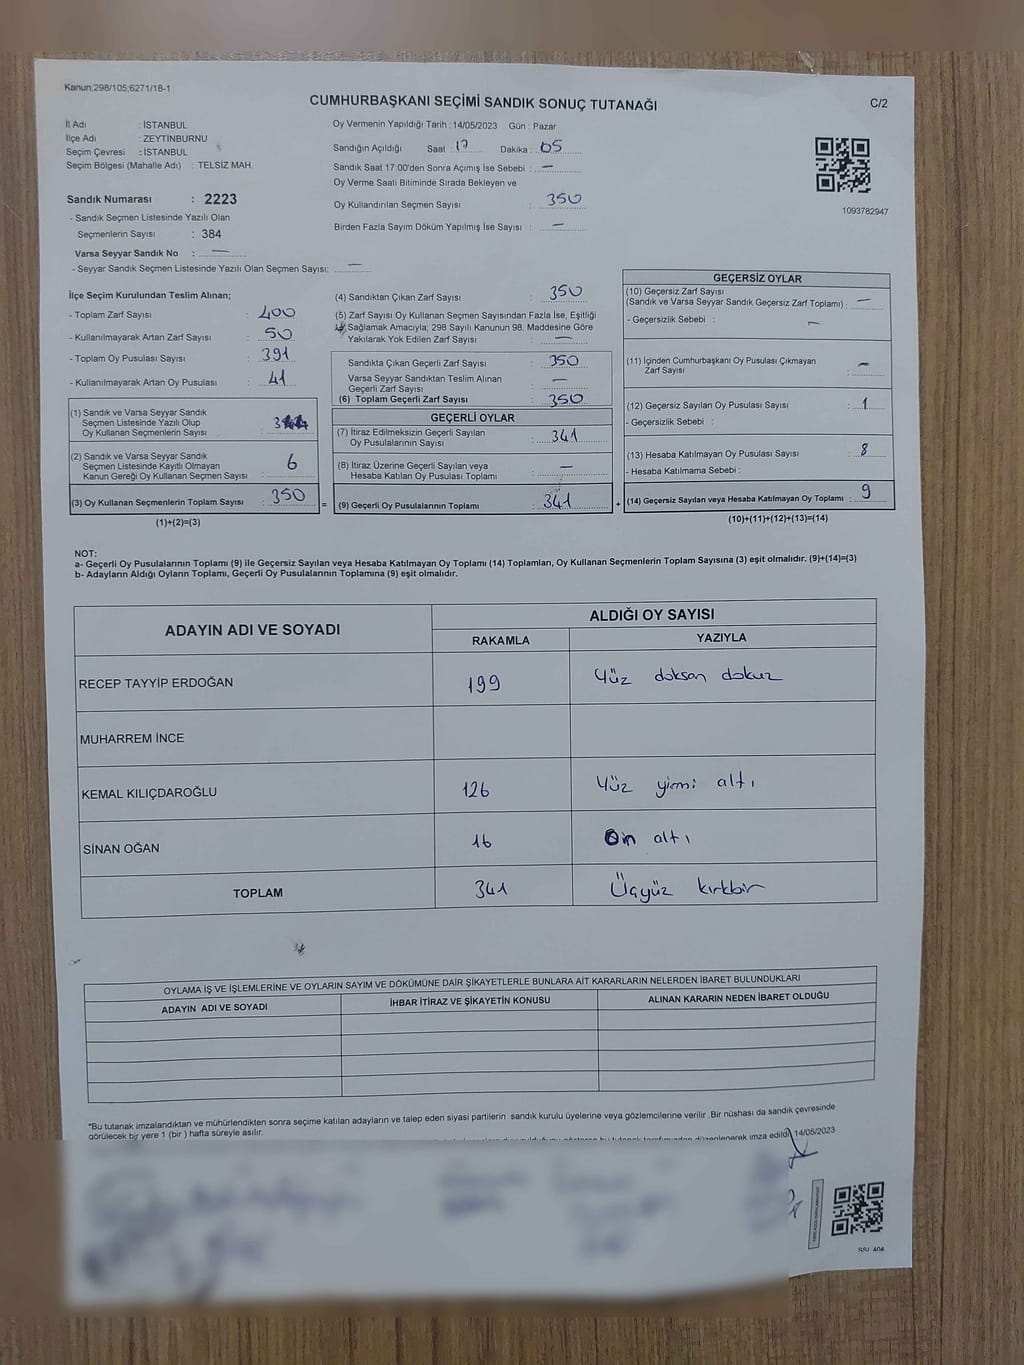 Kanun;298/105;6271/18-1
CUMHURBAŞKANI SEÇİMİ SANDIK SONUÇ TUTANAĞI
C/2
İl Adı : İSTANBUL
İlçe Adı : ZEYTİNBURNU
Seçim Çevresi : İSTANBUL
Seçim Bölgesi (Mahalle Adı) : TELSİZ MAH.
Sandık Numarası : 2223
- Sandık Seçmen Listesinde Yazılı Olan
Seçmenlerin Sayısı : 384
Varsa Seyyar Sandık No : —
- Seyyar Sandık Seçmen Listesinde Yazılı Olan Seçmen Sayısı: —
Oy Vermenin Yapıldığı Tarih :14/05/2023 Gün : Pazar
Sandığın Açıldığı Saat : 17 Dakika : 05
Sandık Saat 17:00'den Sonra Açımış İse Sebebi : —
Oy Verme Saati Bitiminde Sırada Bekleyen ve
Oy Kullandırılan Seçmen Sayısı : 350
Birden Fazla Sayım Döküm Yapılmış İse Sayısı : —
1093782947
İlçe Seçim Kurulundan Teslim Alınan;
- Toplam Zarf Sayısı : 400
- Kullanılmayarak Artan Zarf Sayısı : 50
- Toplam Oy Pusulası Sayısı : 391
- Kullanılmayarak Artan Oy Pusulası : 41
(1) Sandık ve Varsa Seyyar Sandık
Seçmen Listesinde Yazılı Olup
Oy Kullanan Seçmenlerin Sayısı :
(2) Sandık ve Varsa Seyyar Sandık
Seçmen Listesinde Kayıtlı Olmayan
Kanun Gereği Oy Kullanan Seçmen Sayısı : 6
(3) Oy Kullanan Seçmenlerin Toplam Sayısı : 350
(1)+(2)=(3)
(4) Sandıktan Çıkan Zarf Sayısı : 350
(5) Zarf Sayısı Oy Kullanan Seçmen Sayısından Fazla İse, Eşitliği
Sağlamak Amacıyla; 298 Sayılı Kanunun 98. Maddesine Göre
Yakılarak Yok Edilen Zarf Sayısı : —
Sandıkta Çıkan Geçerli Zarf Sayısı : 350
Varsa Seyyar Sandıktan Teslim Alınan
Geçerli Zarf Sayısı : —
(6) Toplam Geçerli Zarf Sayısı : 350
GEÇERLİ OYLAR
(7) İtiraz Edilmeksizin Geçerli Sayılan
Oy Pusulalarının Sayısı : 341
(8) İtiraz Üzerine Geçerli Sayılan veya
Hesaba Katılan Oy Pusulası Toplamı : —
= (9) Geçerli Oy Pusulalarının Toplamı : 341 +
GEÇERSİZ OYLAR
(10) Geçersiz Zarf Sayısı
(Sandık ve Varsa Seyyar Sandık Geçersiz Zarf Toplamı) : —
- Geçersizlik Sebebi : —
(11) İçinden Cumhurbaşkanı Oy Pusulası Çıkmayan
Zarf Sayısı : —
(12) Geçersiz Sayılan Oy Pusulası Sayısı : 1
- Geçersizlik Sebebi :
(13) Hesaba Katılmayan Oy Pusulası Sayısı : 8
- Hesaba Katılmama Sebebi :
(14) Geçersiz Sayılan veya Hesaba Katılmayan Oy Toplamı : 9
(10)+(11)+(12)+(13)=(14)
NOT:
a- Geçerli Oy Pusulalarının Toplamı (9) ile Geçersiz Sayılan veya Hesaba Katılmayan Oy Toplamı (14) Toplamları, Oy Kullanan Seçmenlerin Toplam Sayısına (3) eşit olmalıdır. (9)+(14)=(3)
b- Adayların Aldığı Oyların Toplamı, Geçerli Oy Pusulalarının Toplamına (9) eşit olmalıdır.
ADAYIN ADI VE SOYADI
ALDIĞI OY SAYISI
RAKAMLA YAZIYLA
RECEP TAYYİP ERDOĞAN 199 Yüz doksan dokuz
MUHARREM İNCE
KEMAL KILIÇDAROĞLU 126 Yüz yirmi altı
SİNAN OĞAN 16 On altı
TOPLAM 341 Üçyüz kırkbir
OYLAMA İŞ VE İŞLEMLERİNE VE OYLARIN SAYIM VE DÖKÜMÜNE DAİR ŞİKAYETLERLE BUNLARA AİT KARARLARIN NELERDEN İBARET BULUNDUKLARI
ADAYIN ADI VE SOYADI İHBAR İTİRAZ VE ŞİKAYETİN KONUSU ALINAN KARARIN NEDEN İBARET OLDUĞU
*Bu tutanak imzalandıktan ve mühürlendikten sonra seçime katılan adayların ve talep eden siyasi partilerin sandık kurulu üyelerine veya gözlemcilerine verilir .Bir nüshası da sandık çevresinde
görülecek bir yere 1 (bir ) hafta süreyle asılır.
düzenlenerek imza edildi. 14/05/2023